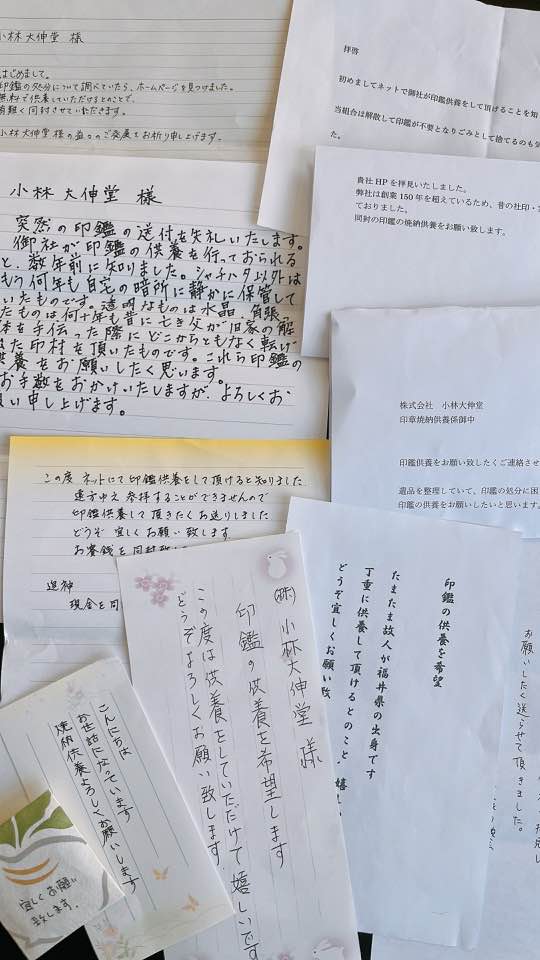 小林大伸堂 様
はじめまして。
印鑑の処分について調べていたら、ホームページを見つけました。
無料で供養していただけるとのことで、
有難く同封させていただきます。
小林大伸堂様の益々のご発展をお祈り申し上げます。
拝啓
初めましてネットで御社が印鑑供養をして頂けることを知
当組合は解散して印鑑が不要となりごみとして捨てるのも
た。
貴社 HP を拝見いたしました。
弊社は創業 150 年を超えているため、昔の社印・
ておりました。
同封の印鑑の焼納供養をお願い致します。
小林 大伸堂 様
突然の印鑑の送付を失礼いたします。
御社が印鑑の供養を行っておられる
と、数年前に知りました。シャチハタ以外は
もう何年も自宅の暗所に静かに保管して
いたものです。透明なものは水晶、
たものは何十年も昔に亡き父が旧家の解
体を手伝った際にどこからともなく転げ
出た印材を頂いたものです。これら印鑑の
供養をお願いしたく思います。
お手数をおかけいたしますが、よろしくお
願い申し上げます。
株式会社 小林大伸堂
印章焼納供養係御中
印鑑供養をお願い致したくご連絡させ
遺品を整理していて、印鑑の処分に困
印鑑の供養をお願いしたいと思います。
この度 ネットにて印鑑供養をして頂けると知りました
遠方ゆえ 参拝することができませんので
印鑑供養して頂きたくお送りしました
どうぞ 宜しくお願い致します
お賽銭を同封致し
追伸
現金を同
㈱小林大伸堂 様
印鑑の供養を希望します
この度は供養をしていただけて嬉しいです
どうぞよろしくお願い致します。
印鑑の供養を希望
たまたま故人が福井県の出身です
丁重に供養して頂けるとのこと 嬉し
どうぞ宜しくお願い致
お願いしたく送らせて頂きました。
こんにちは
お世話になっています
焼納供養よろしくお願いします
宜しくお願い
致します。